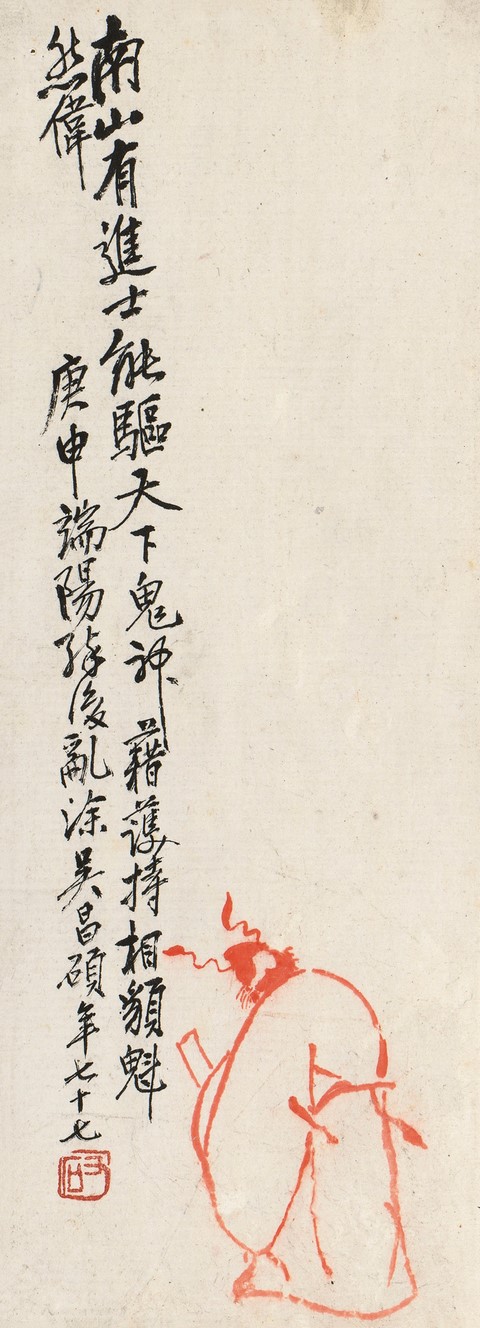 南山有進士能驅天下鬼神藉護持相貌魁
然偉
庚申端陽後亂涂吳昌碩年七十七